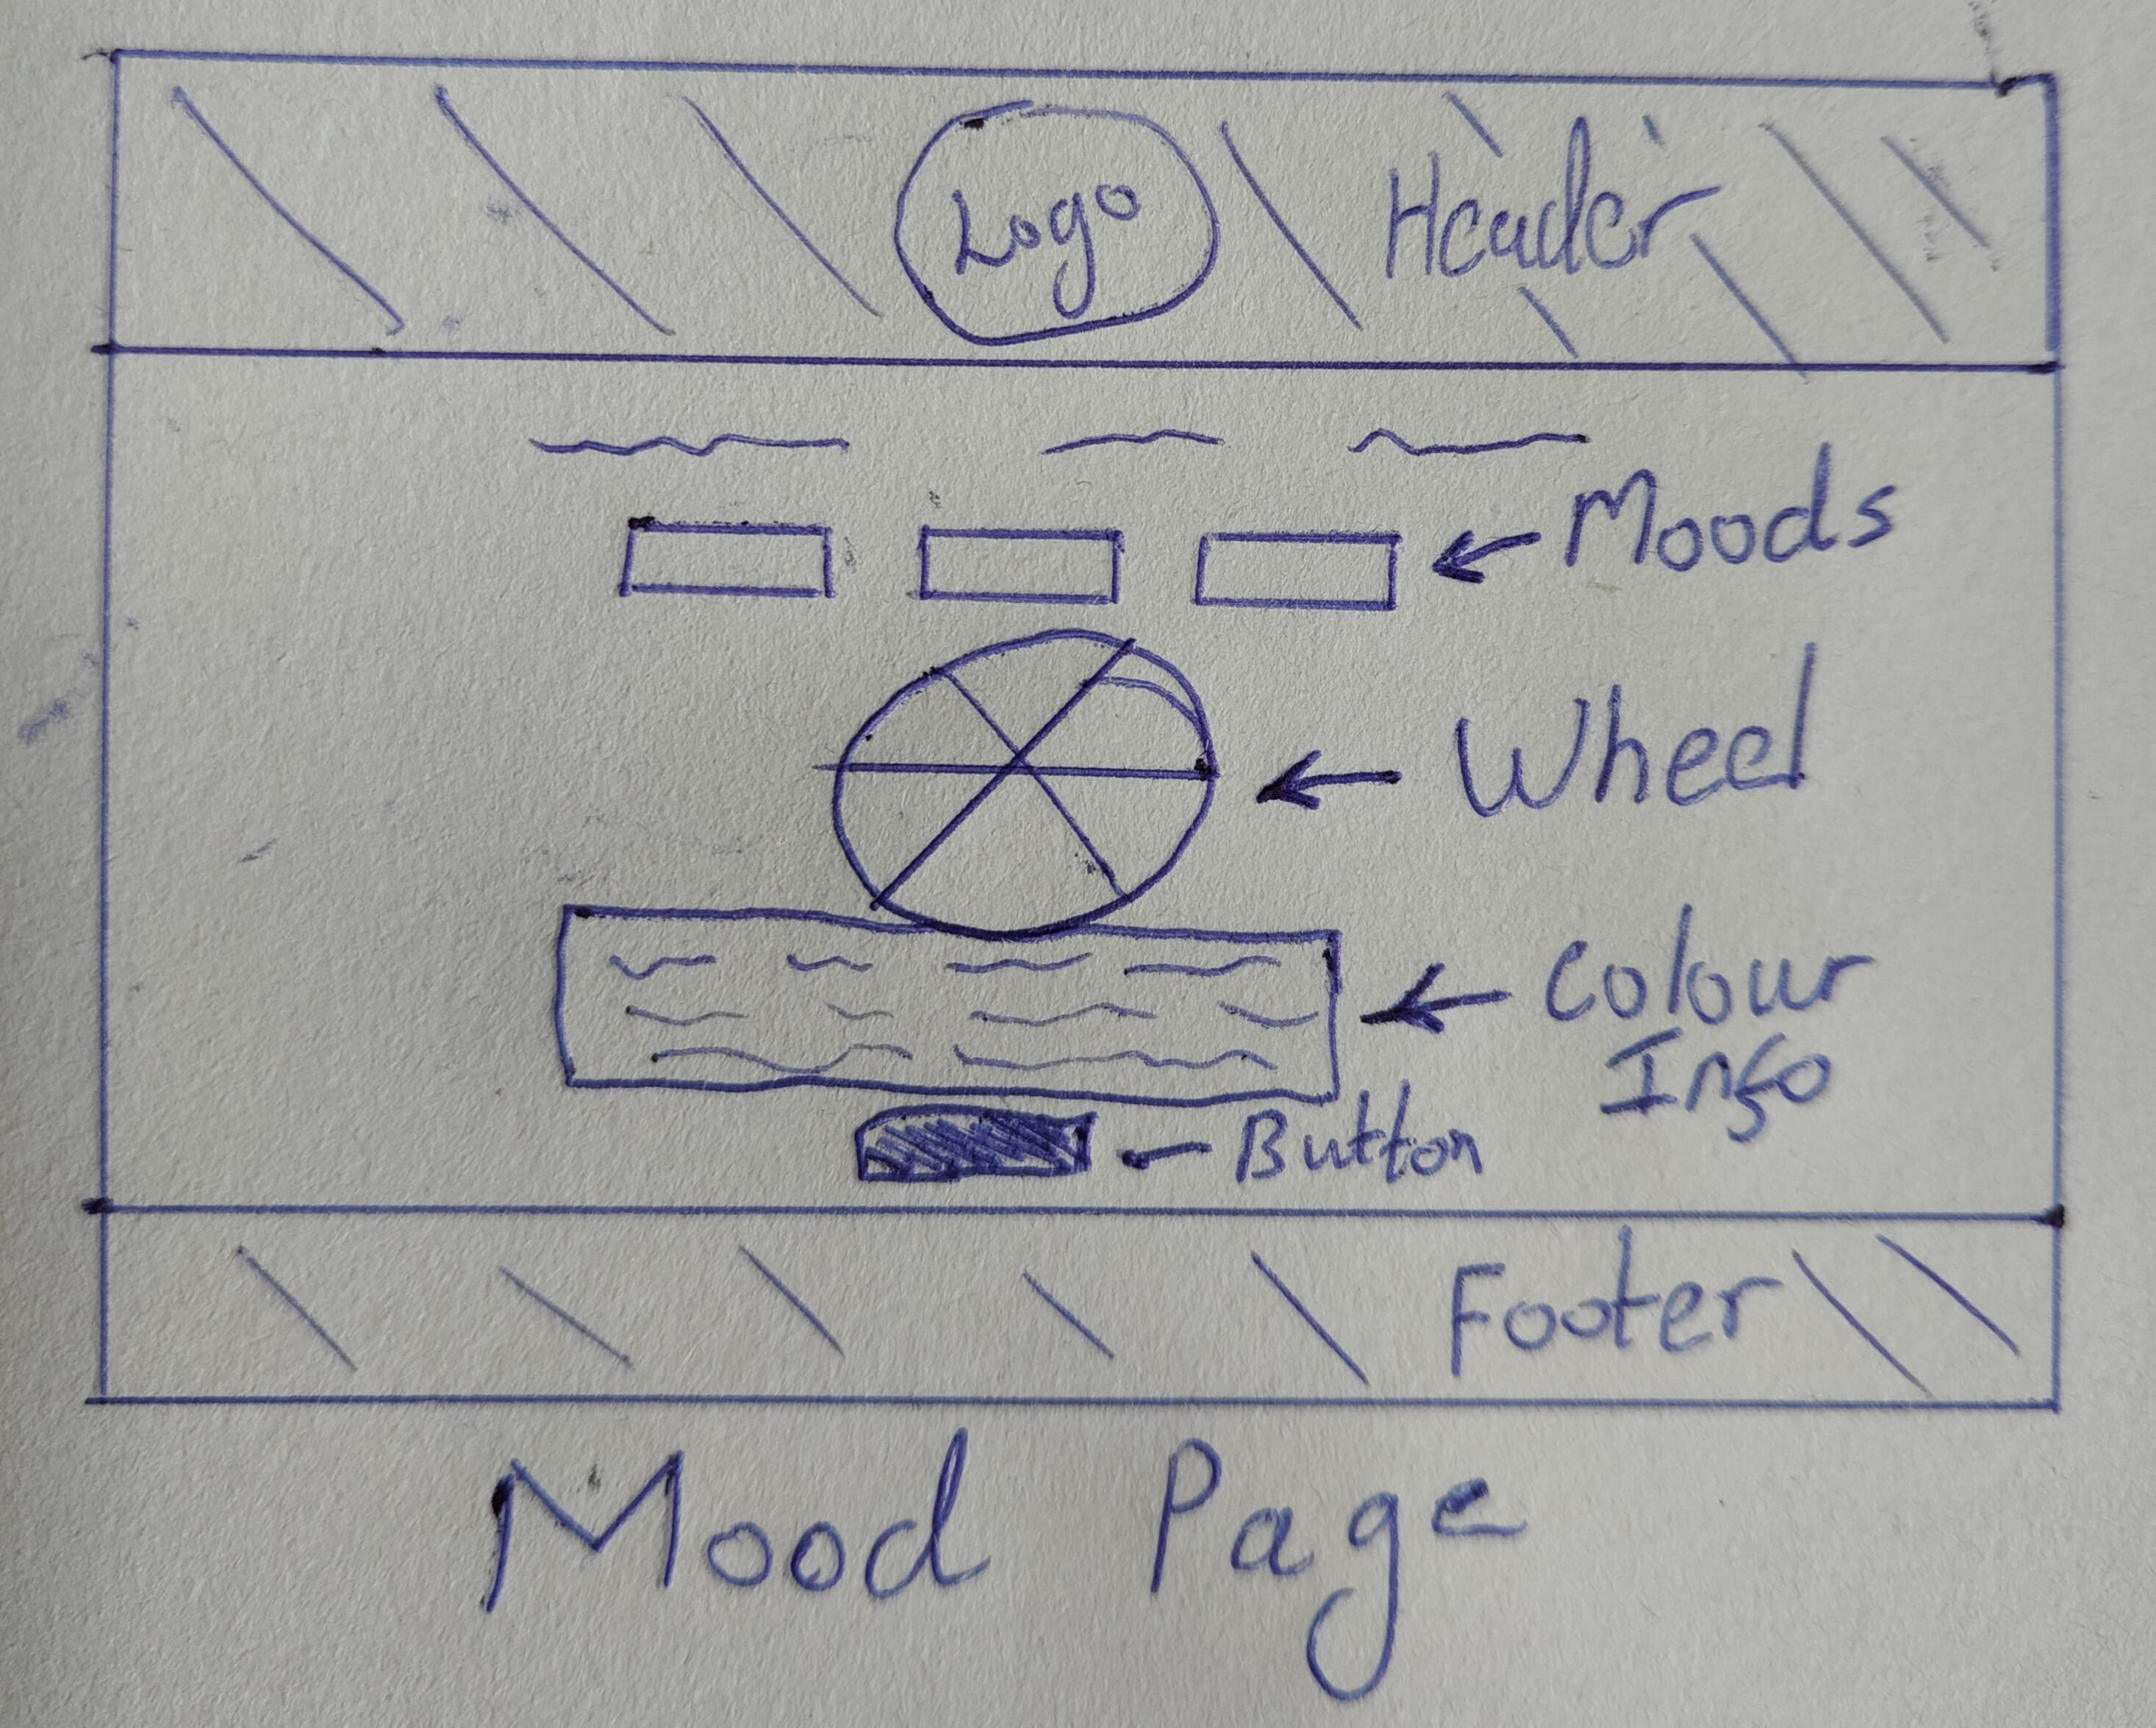 Logo
Header
Moods
Wheel
Colour
Info
Button
Footer
Mood Page